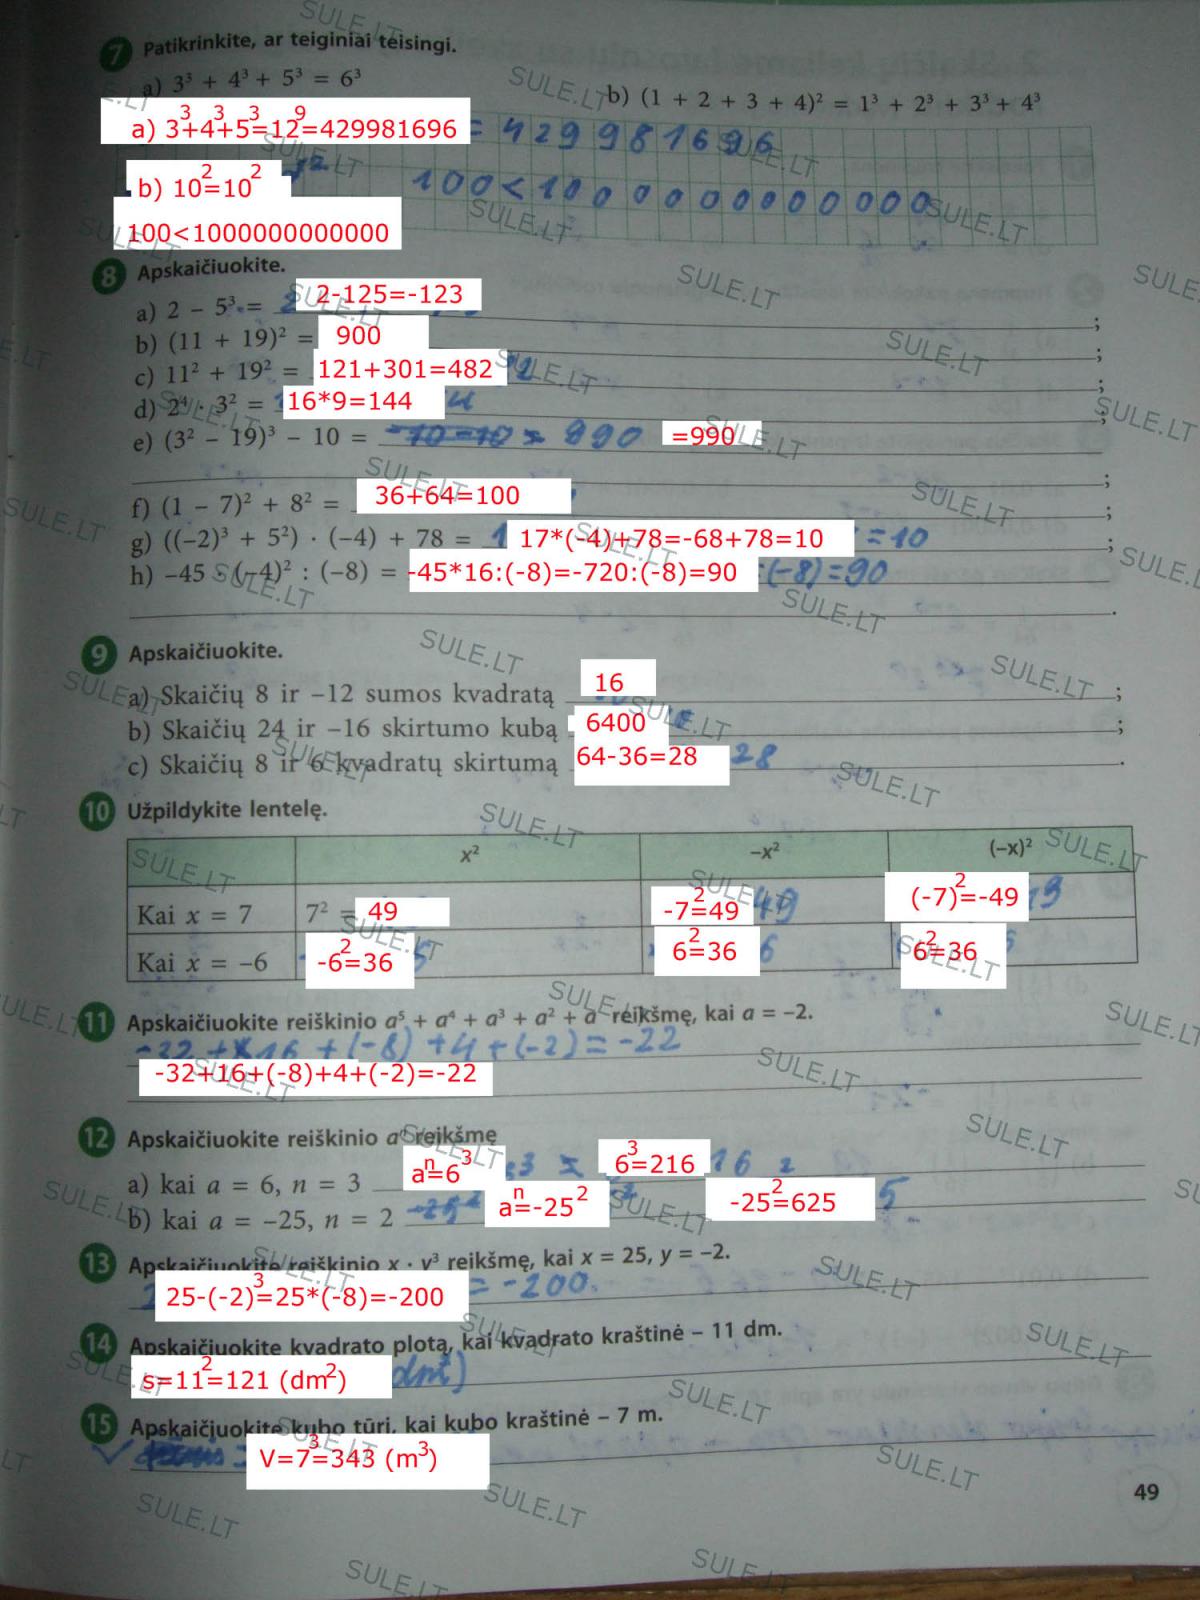 7 Patikrinkite, ar teiginiai teisingi.
a) 3³ + 4³ + 5³ = 6³
b) (1 + 2 + 3 + 4)² = 1³ + 2³ + 3³ + 4³
a) 3³+4³+5³=12⁹=429981696 = 429981696
b) 10²=10²
100<1000000000000
100<1000000000000
8 Apskaičiuokite.
a) 2 – 5³ = 2-125=-123 ;
b) (11 + 19)² = 900 ;
c) 11² + 19² = 121+301=482 ;
d) 2⁴ · 3² = 16*9=144 ;
e) (3² – 19)³ – 10 = -10-10 = 990 =990
;
f) (1 – 7)² + 8² = 36+64=100 ;
g) ((–2)³ + 5²) · (–4) + 78 = 17*(-4)+78=-68+78=10 =10 ;
h) –45 · (–4)² : (–8) = -45*16:(-8)=-720:(-8)=90 :(-8)=90
.
9 Apskaičiuokite.
a) Skaičių 8 ir –12 sumos kvadratą 16 ;
b) Skaičių 24 ir –16 skirtumo kubą 6400 ;
c) Skaičių 8 ir 6 kvadratų skirtumą 64-36=28 28 .
10 Užpildykite lentelę.
x² –x² (–x)²
Kai x = 7 7² = 49 -7²=49 49 (-7)²=-49
Kai x = –6 -6²=36 6²=36 6²=36
11 Apskaičiuokite reiškinio a⁵ + a⁴ + a³ + a² + a reikšmę, kai a = –2.
-32 + 16 + (-8) + 4 + (-2) = -22
-32+16+(-8)+4+(-2)=-22
12 Apskaičiuokite reiškinio aⁿ reikšmę
a) kai a = 6, n = 3 aⁿ=6³ 6³=216
b) kai a = –25, n = 2 -25² aⁿ=-25² -25²=625
13 Apskaičiuokite reiškinio x · y³ reikšmę, kai x = 25, y = –2.
25-(-2)³=25*(-8)=-200 = -200.
14 Apskaičiuokite kvadrato plotą, kai kvadrato kraštinė – 11 dm.
s=11²=121 (dm²) dm²)
15 Apskaičiuokite kubo tūrį, kai kubo kraštinė – 7 m.
V=7³=343 (m³)
49
SULE.LT